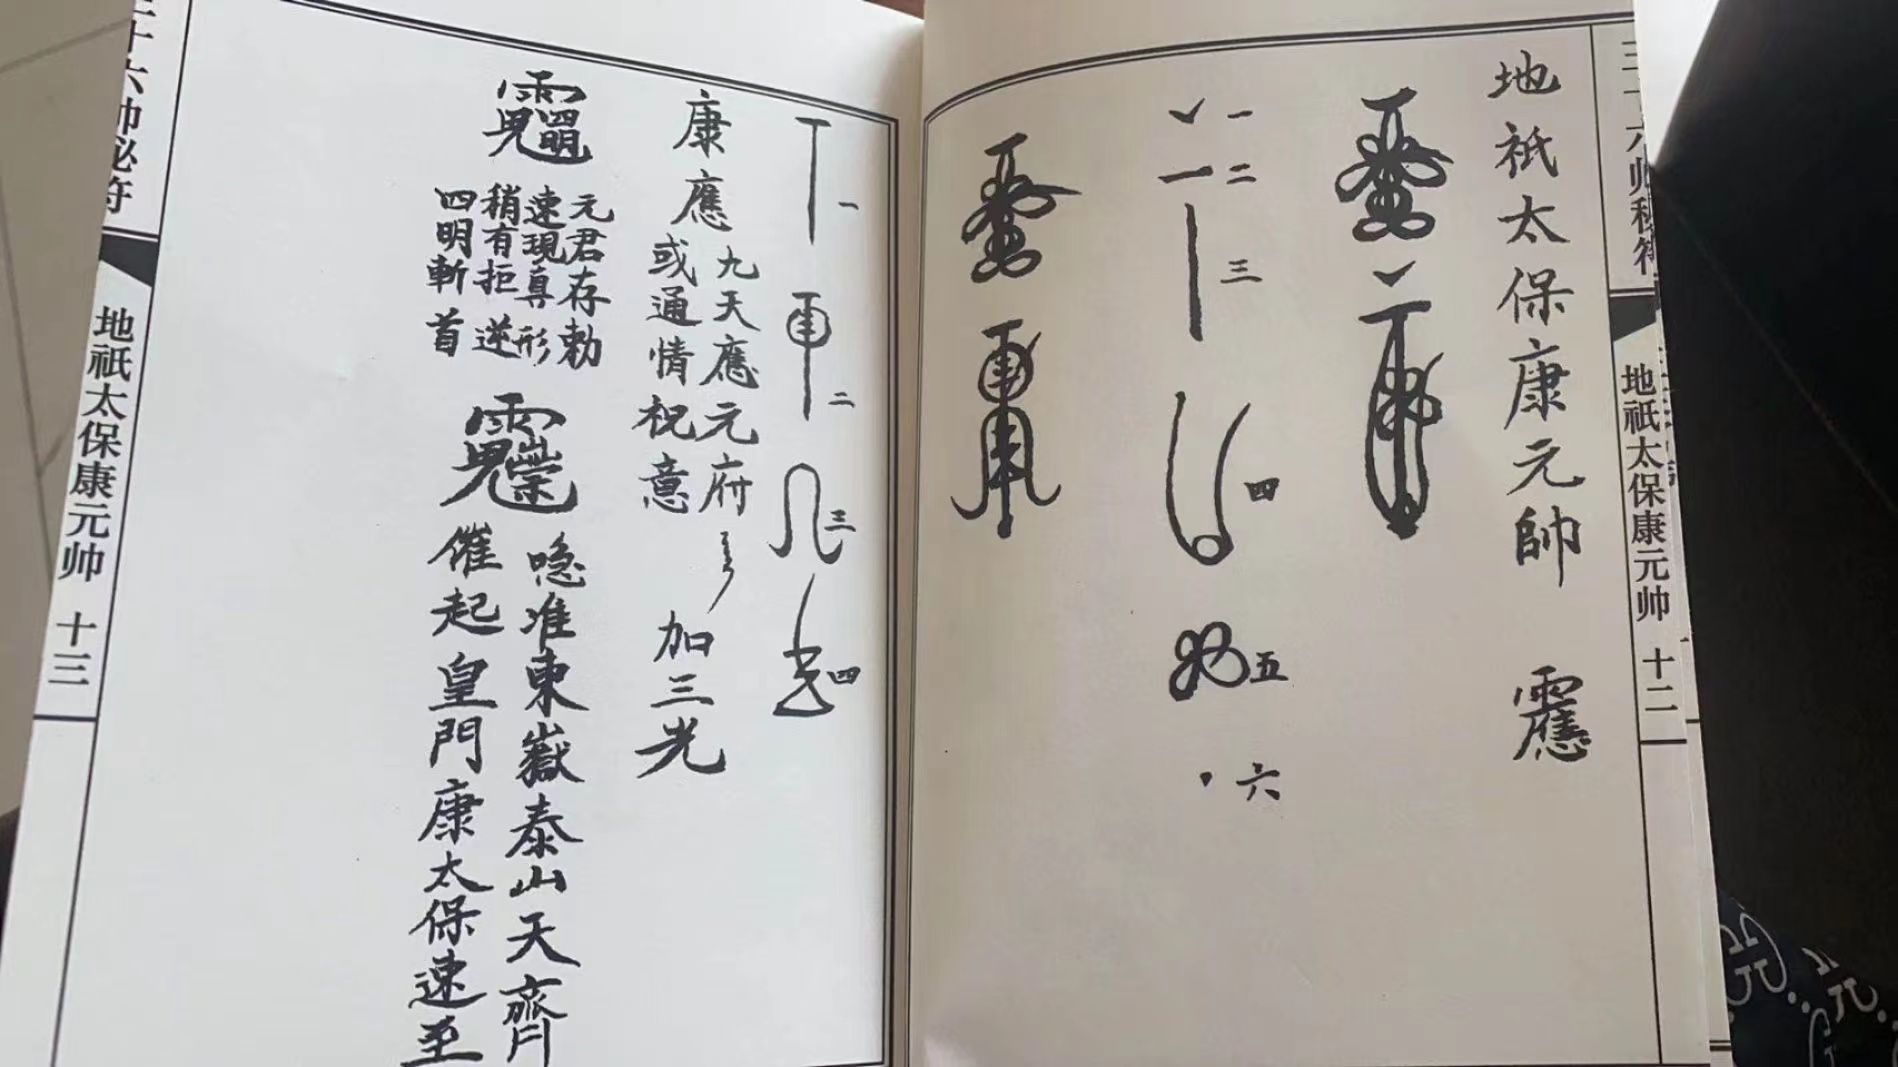 三十六帅秘符
地祇太保康元帅 十二
地祇太保康元帥
一
二
三
四
五
六
一
二
三
四
康應
九天應元府
或通情祝意
加三光
元君存勅
速現真形
稍有拒逆
四明斬首
唵准東嶽泰山天齊
催起皇門康太保速至
三十六帅秘符
地祇太保康元帅 十三